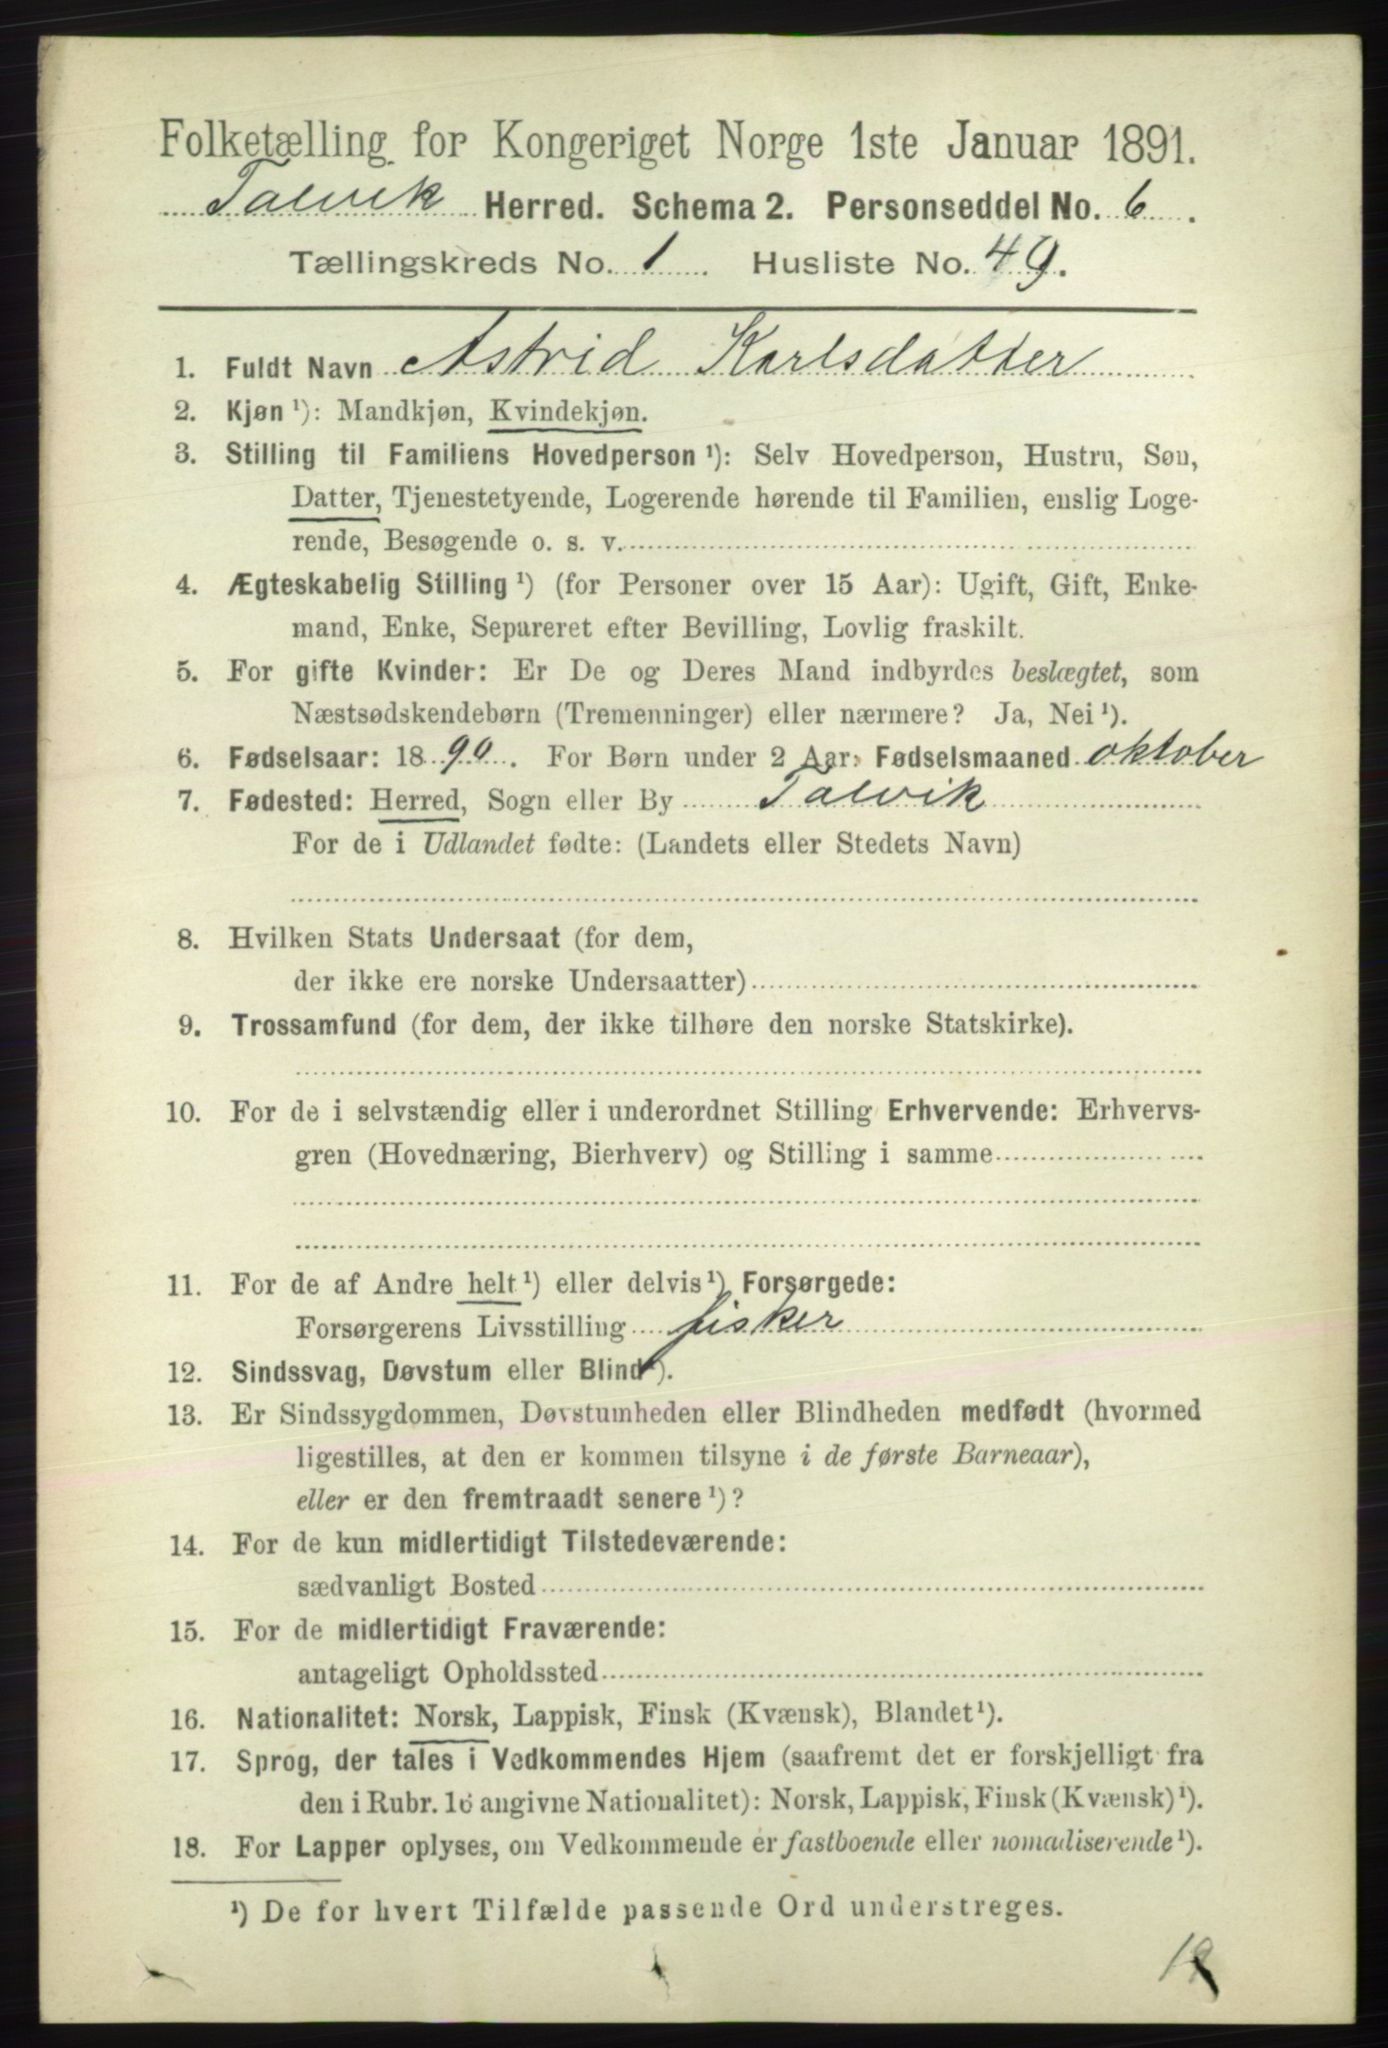 Folketælling for Kongeriget Norge 1ste Januar 1891.
Talvik Herred. Schema 2. Personseddel No. 6.
Tællingskreds No. 1 Husliste No. 49.
1. Fuldt Navn Astrid Karlsdatter
2. Kjøn ¹): Mandkjøn, Kvindekjøn.
3. Stilling til Familiens Hovedperson ¹): Selv Hovedperson, Hustru, Søn,
Datter, Tjenestetyende, Logerende hørende til Familien, enslig Loge-
rende, Besøgende o. s. v.
4. Ægteskabelig Stilling ¹) (for Personer over 15 Aar): Ugift, Gift, Enke-
mand, Enke, Separeret efter Bevilling, Lovlig fraskilt.
5. For gifte Kvinder: Er De og Deres Mand indbyrdes beslægtet, som
Næstsødskendebørn (Tremenninger) eller nærmere? Ja, Nei ¹).
6. Fødselsaar: 1890. For Børn under 2 Aar: Fødselsmaaned oktober
7. Fødested: Herred, Sogn eller By Talvik
For de i Udlandet fødte: (Landets eller Stedets Navn)
8. Hvilken Stats Undersaat (for dem,
der ikke ere norske Undersaatter)
9. Trossamfund (for dem, der ikke tilhøre den norske Statskirke).
10. For de i selvstændig eller i underordnet Stilling Erhvervende: Erhvervs-
gren (Hovednæring, Bierhverv) og Stilling i samme
11. For de af Andre helt ¹) eller delvis ¹) Forsørgede:
Forsørgerens Livsstilling fisker
12. Sindssvag, Døvstum eller Blind ¹).
13. Er Sindssygdommen, Døvstumheden eller Blindheden medfødt (hvormed
ligestilles, at den er kommen tilsyne i de første Barneaar),
eller er den fremtraadt senere ¹)?
14. For de kun midlertidigt Tilstedeværende:
sædvanligt Bosted
15. For de midlertidigt Fraværende:
antageligt Opholdssted
16. Nationalitet: Norsk, Lappisk, Finsk (Kvænsk), Blandet ¹).
17. Sprog, der tales i Vedkommendes Hjem (saafremt det er forskjelligt fra
den i Rubr. 16 angivne Nationalitet): Norsk, Lappisk, Finsk (Kvænsk) ¹).
18. For Lapper oplyses, om Vedkommende er fastboende eller nomadiserende ¹).
¹) De for hvert Tilfælde passende Ord understreges.